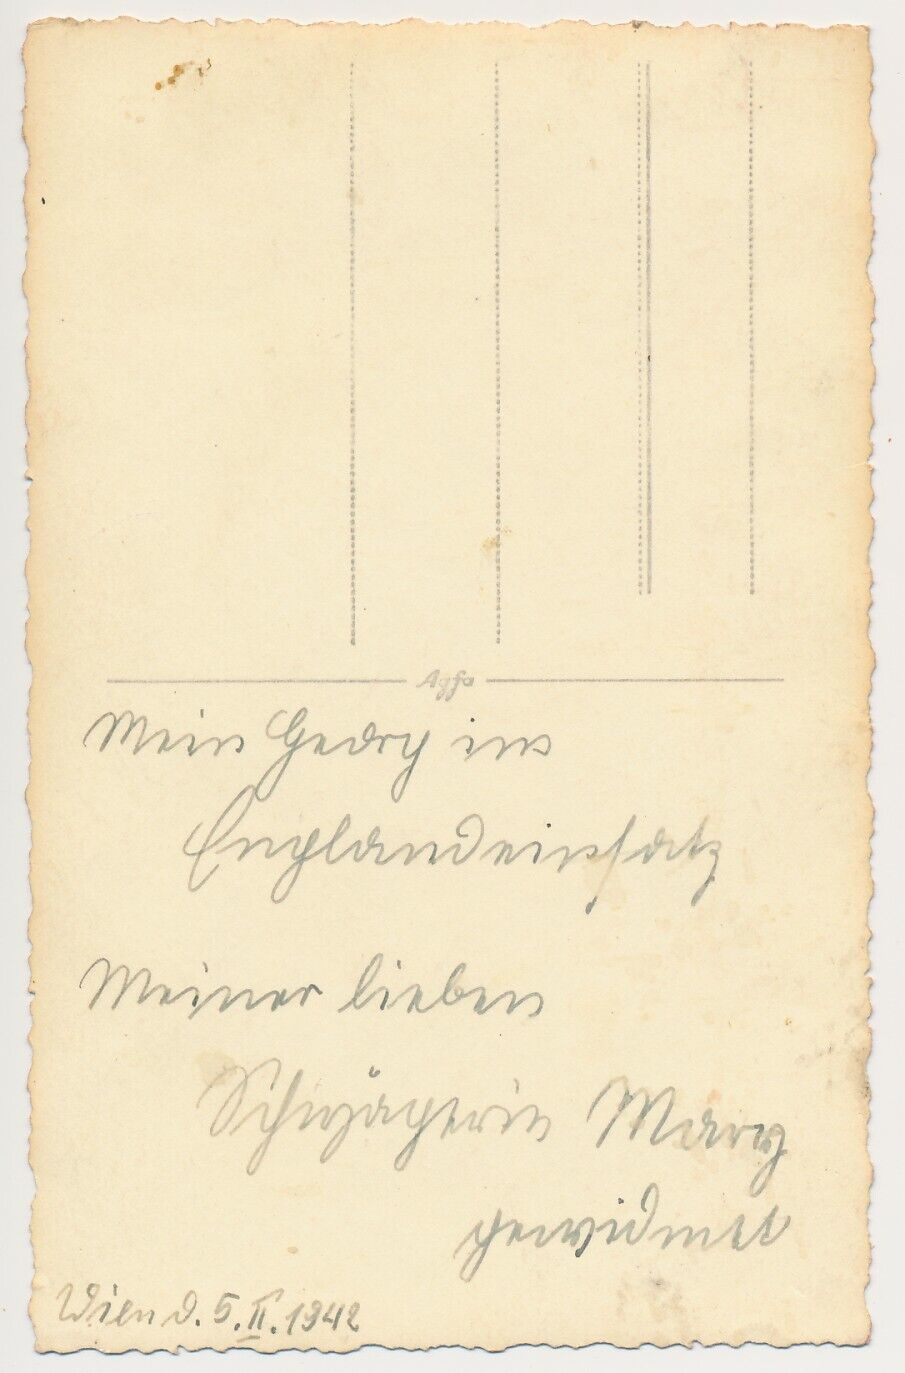 Agfa
Mein Georg im
Englandeinsatz
Meiner lieben
Schwägerin Mary
gewidmet
Wien d. 5.II.1942